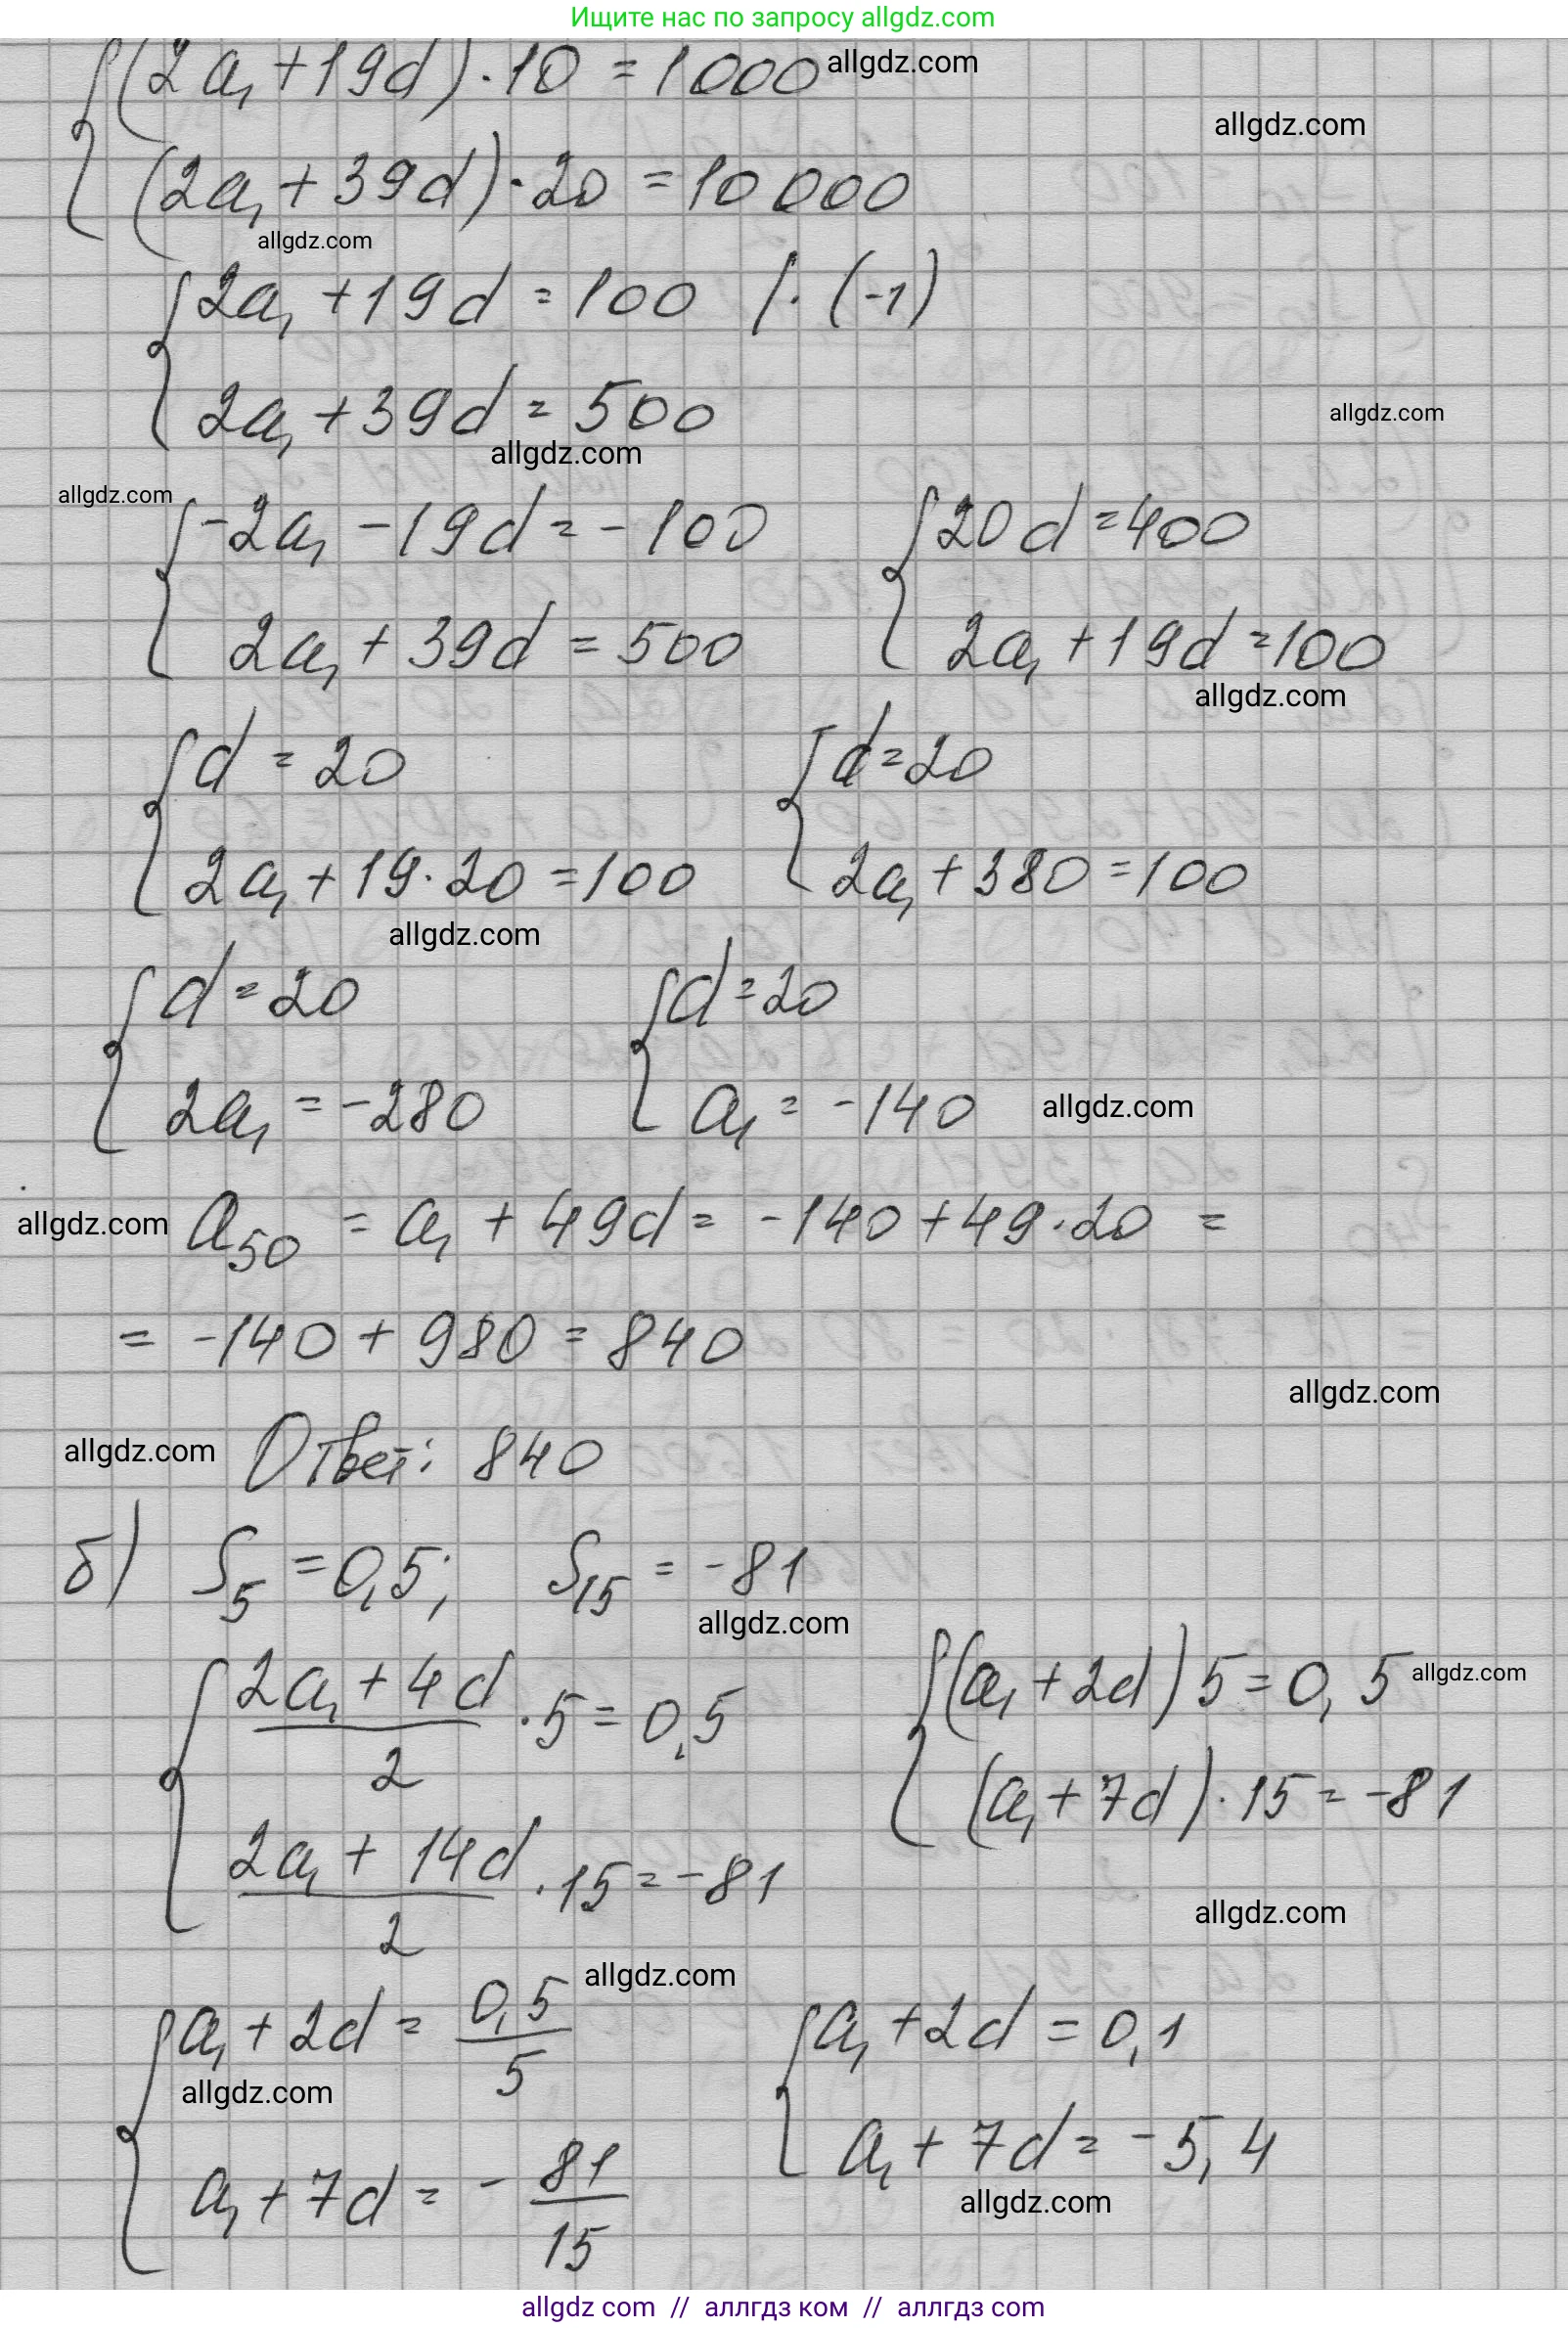 Ищите нас по запросу allgdz.com
(2a₁ + 19d) · 10 = 1000 allgdz.com
allgdz.com
(2a₁ + 39d) · 20 = 10000
allgdz.com
2a₁ + 19d = 100 | · (-1)
2a₁ + 39d = 500
allgdz.com
allgdz.com
allgdz.com
-2a₁ - 19d = -100 20d = 400
2a₁ + 39d = 500 2a₁ + 19d = 100
allgdz.com
d = 20 d = 20
2a₁ + 19 · 20 = 100 2a₁ + 380 = 100
allgdz.com
d = 20 d = 20
2a₁ = -280 a₁ = -140 allgdz.com
allgdz.com a₅₀ = a₁ + 49d = -140 + 49 · 20 =
= -140 + 980 = 840
allgdz.com
allgdz.com Ответ: 840
б) S₅ = 0,5; S₁₅ = -81
allgdz.com
(2a₁ + 4d)/2 · 5 = 0,5 (a₁ + 2d) 5 = 0,5 allgdz.com
(2a₁ + 14d)/2 · 15 = -81 (a₁ + 7d) · 15 = -81
allgdz.com
allgdz.com
a₁ + 2d = 0,5/5 a₁ + 2d = 0,1
allgdz.com
a₁ + 7d = - 81/15 a₁ + 7d = -5,4
allgdz.com
allgdz com // аллгдз ком // аллгдз com